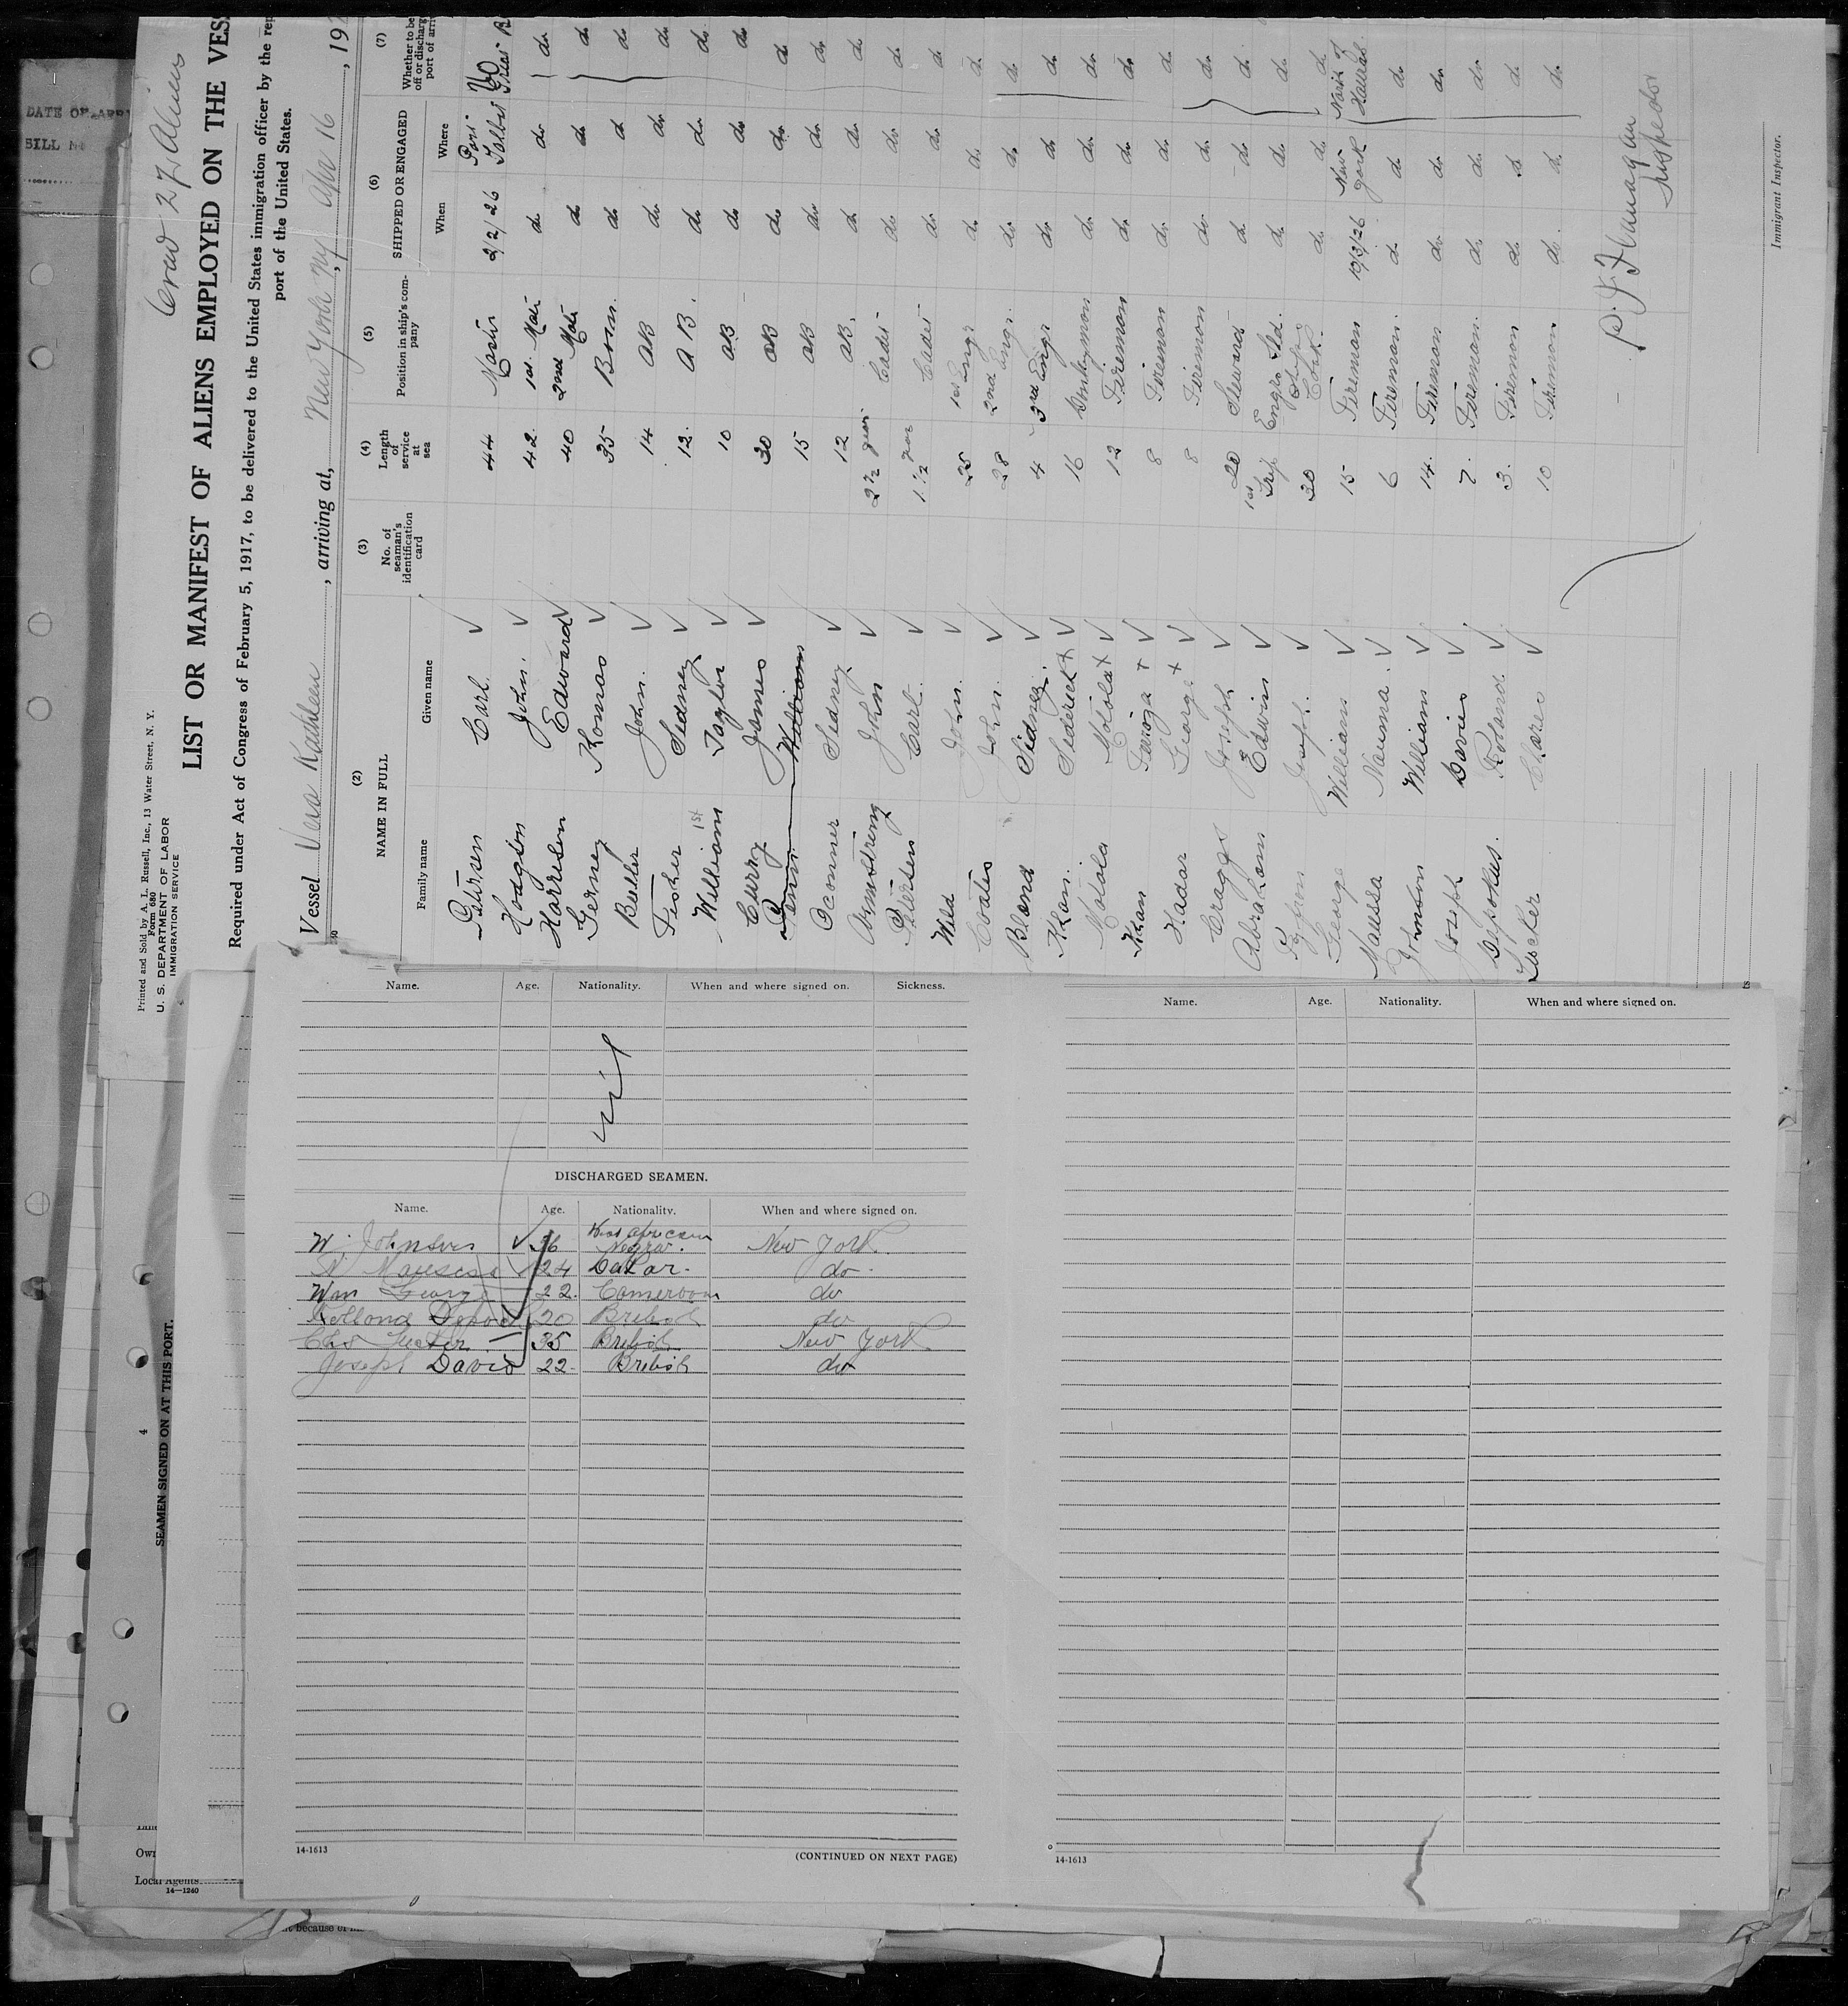 DATE OF
BILL
Crew 27 Aliens
Printed and Sold by A. L. Russell, Inc., 13 Water Street, N. Y.
Form 680
U. S. DEPARTMENT OF LABOR
IMMIGRATION SERVICE
LIST OR MANIFEST OF ALIENS EMPLOYED ON THE VES
Required under Act of Congress of February 5, 1917, to be delivered to the United States immigration officer by the rep
port of the United States.
Vessel Vera Kathleen, arriving at, New York NY, Apr 16, 192
(2) (3) (4) (5) (6) (7)
NAME IN FULL No. of seaman's identification card Length of service at sea Position in ship's company SHIPPED OR ENGAGED Whether to be off or discharg port of arri
Family name Given name When Where
Petersen Carl 44 Master 2/2/26 Port Talbot
Hodgson John. 42. 1st Mate do do do
Harrison Edward 40 2nd Mate do do do
Gerney Thomas 35 Bosn. do do do
Butler John. 14 AB do do do
Fisher Sidney 12. AB. do do do
Williams Taylor 10 AB do do do
Curry James 30 AB do do do
William 15 AB do do do
Oconner Sidney 12 AB. do do do
Armstrong John 2½ year Cadet do do do
Petersen Carl. 1½ year Cadet do do do
Wild John. 25 1st Engr do do do
Coates John. 28 2nd Engr. do do do
Bland Sidney. 4 3rd Engr do do do
Khan. Sederick + 16 Donkeymon do do do
Motola Motola + 12 Firemon do do do
Khan Fairoza + 8 Firemon do do do
Kadar George + 8 Firemon do do do
Craggs Joseph 20 Steward do do do
Abraham Edwin 1st Trip Engrs Std. do do do
Joseph. 30 Cook. do do do
George William 15 Firemon 10/3/26 New York North of Hatteras
Maussa Nauma. 6 Firemon. do do do
Johnson William 14. Firemon do do do
Joseph Davies 7. Firemon. do do do
Roland. 3. Firemon do do do
Tucker Charles 10 Firemon do do do
P. J. Flanagan
Inspector
Immigrant Inspector.
Name. Age. Nationality. When and where signed on. Sickness.
Nil
DISCHARGED SEAMEN.
Name. Age. Nationality. When and where signed on.
W. Johnson 36 West African Negro. New York
N Maussa 24 Dakar. do
Wm George 22. Cameroon do
20 British do
Chs Tucker 35 British New York
Joseph David 22. British do
14-1613
(CONTINUED ON NEXT PAGE)
Name. Age. Nationality. When and where signed on.
14-1613
4
SEAMEN SIGNED ON AT THIS PORT.
Own
Local Agents
14—1240
because of